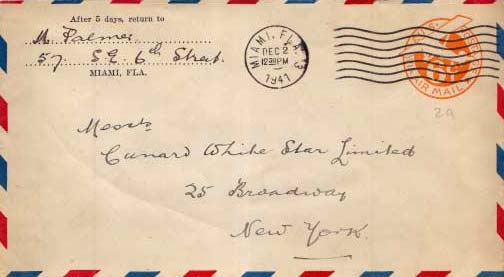 After 5 days, return to
M. Palmer
57. S.E. 6th Street.
MIAMI, FLA.
MIAMI, FLA. 13
DEC 2
1941
U.S. POSTAGE
AIR MAIL
2a
Messrs
Cunard White Star Limited
25 Broadway
New York.